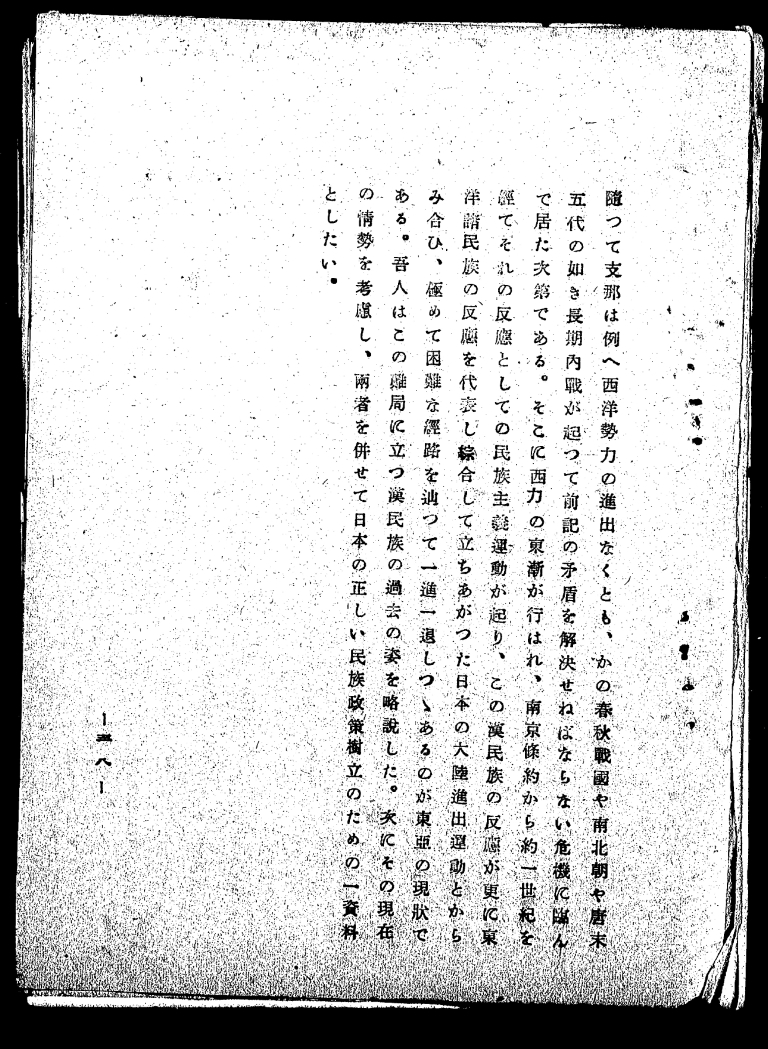 隨つて支那は例へ西洋勢力の進出なくとも、かの春秋戰國や南北朝や唐末
五代の如き長期內戰が起つて前記の矛盾を解決せねばならない危機に臨ん
で居た次第である。そこに西力の東漸が行はれ、南京條約から約一世紀を
經てそれの反應としての民族主義運動が起り、この漢民族の反應が更に東
洋諸民族の反應を代表し綜合して立ちあがつた日本の大陸進出運動とから
み合ひ、極めて困難な經路を辿つて一進一退しつゝあるのが東亞の現狀で
ある。吾人はこの難局に立つ漢民族の過去の姿を略說した。次にその現在
の情勢を考慮し、兩者を併せて日本の正しい民族政策樹立のための一資料
としたい。